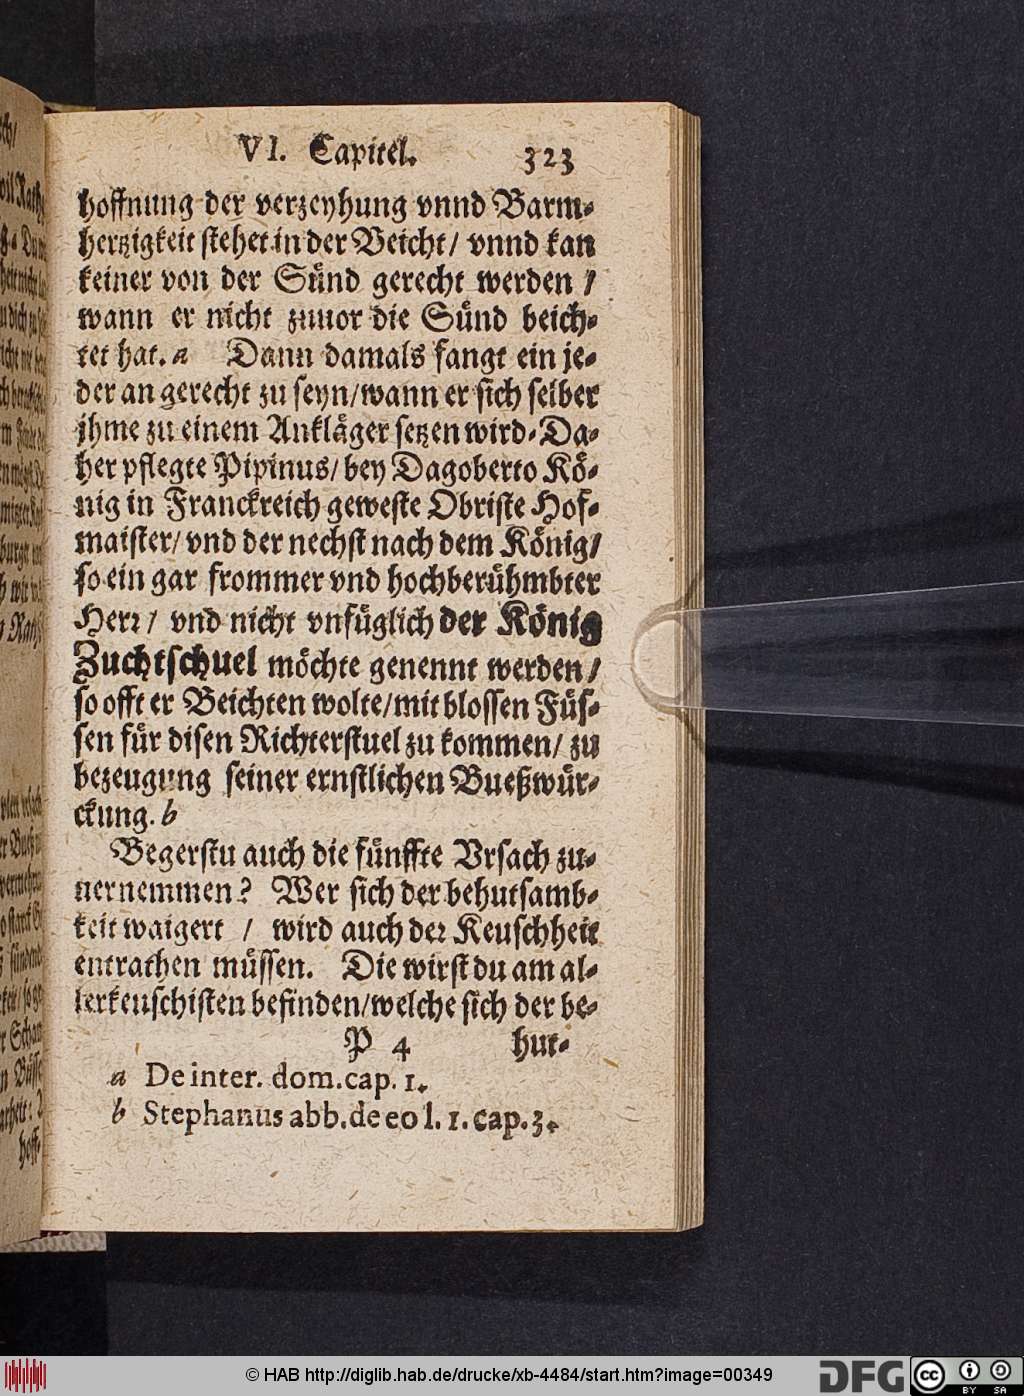 VI. Capitel. 323
hoffnung der verzeyhung vnnd Barm-
hertzigkeit stehet in der Beicht/ vnnd kan
keiner von der Sünd gerecht werden /
wann er nicht zuuor die Sünd beich-
tet hat. a Dann damals fangt ein je-
der an gerecht zu seyn/wann er sich selber
jhme zu einem Ankläger setzen wird. Da-
her pflegte Pipinus/ bey Dagoberto Kö-
nig in Franckreich geweste Obriste Hof-
maister/ vnd der nechst nach dem König/
so ein gar frommer vnd hochberühmbter
Herr/ vnd nicht vnfüglich der König
Zuchtschuel möchte genennt werden/
so offt er Beichten wolte/mit blossen Füs-
sen für disen Richterstuel zu kommen/ zu
bezeugung seiner ernstlichen Bueßwür-
ckung. b
Begerstu auch die fünffte Vrsach zu-
uernemmen? Wer sich der behutsamb-
keit waigert / wird auch der Keuschheit
entrathen müssen. Die wirst du am al-
lerkeuschisten befinden/welche sich der be-
P 4 hut-
a De inter. dom. cap. 1.
b Stephanus abb. de eo l. 1. cap. 3.
© HAB http://diglib.hab.de/drucke/xb-4484/start.htm?image=00349
DFG
cc
BY SA